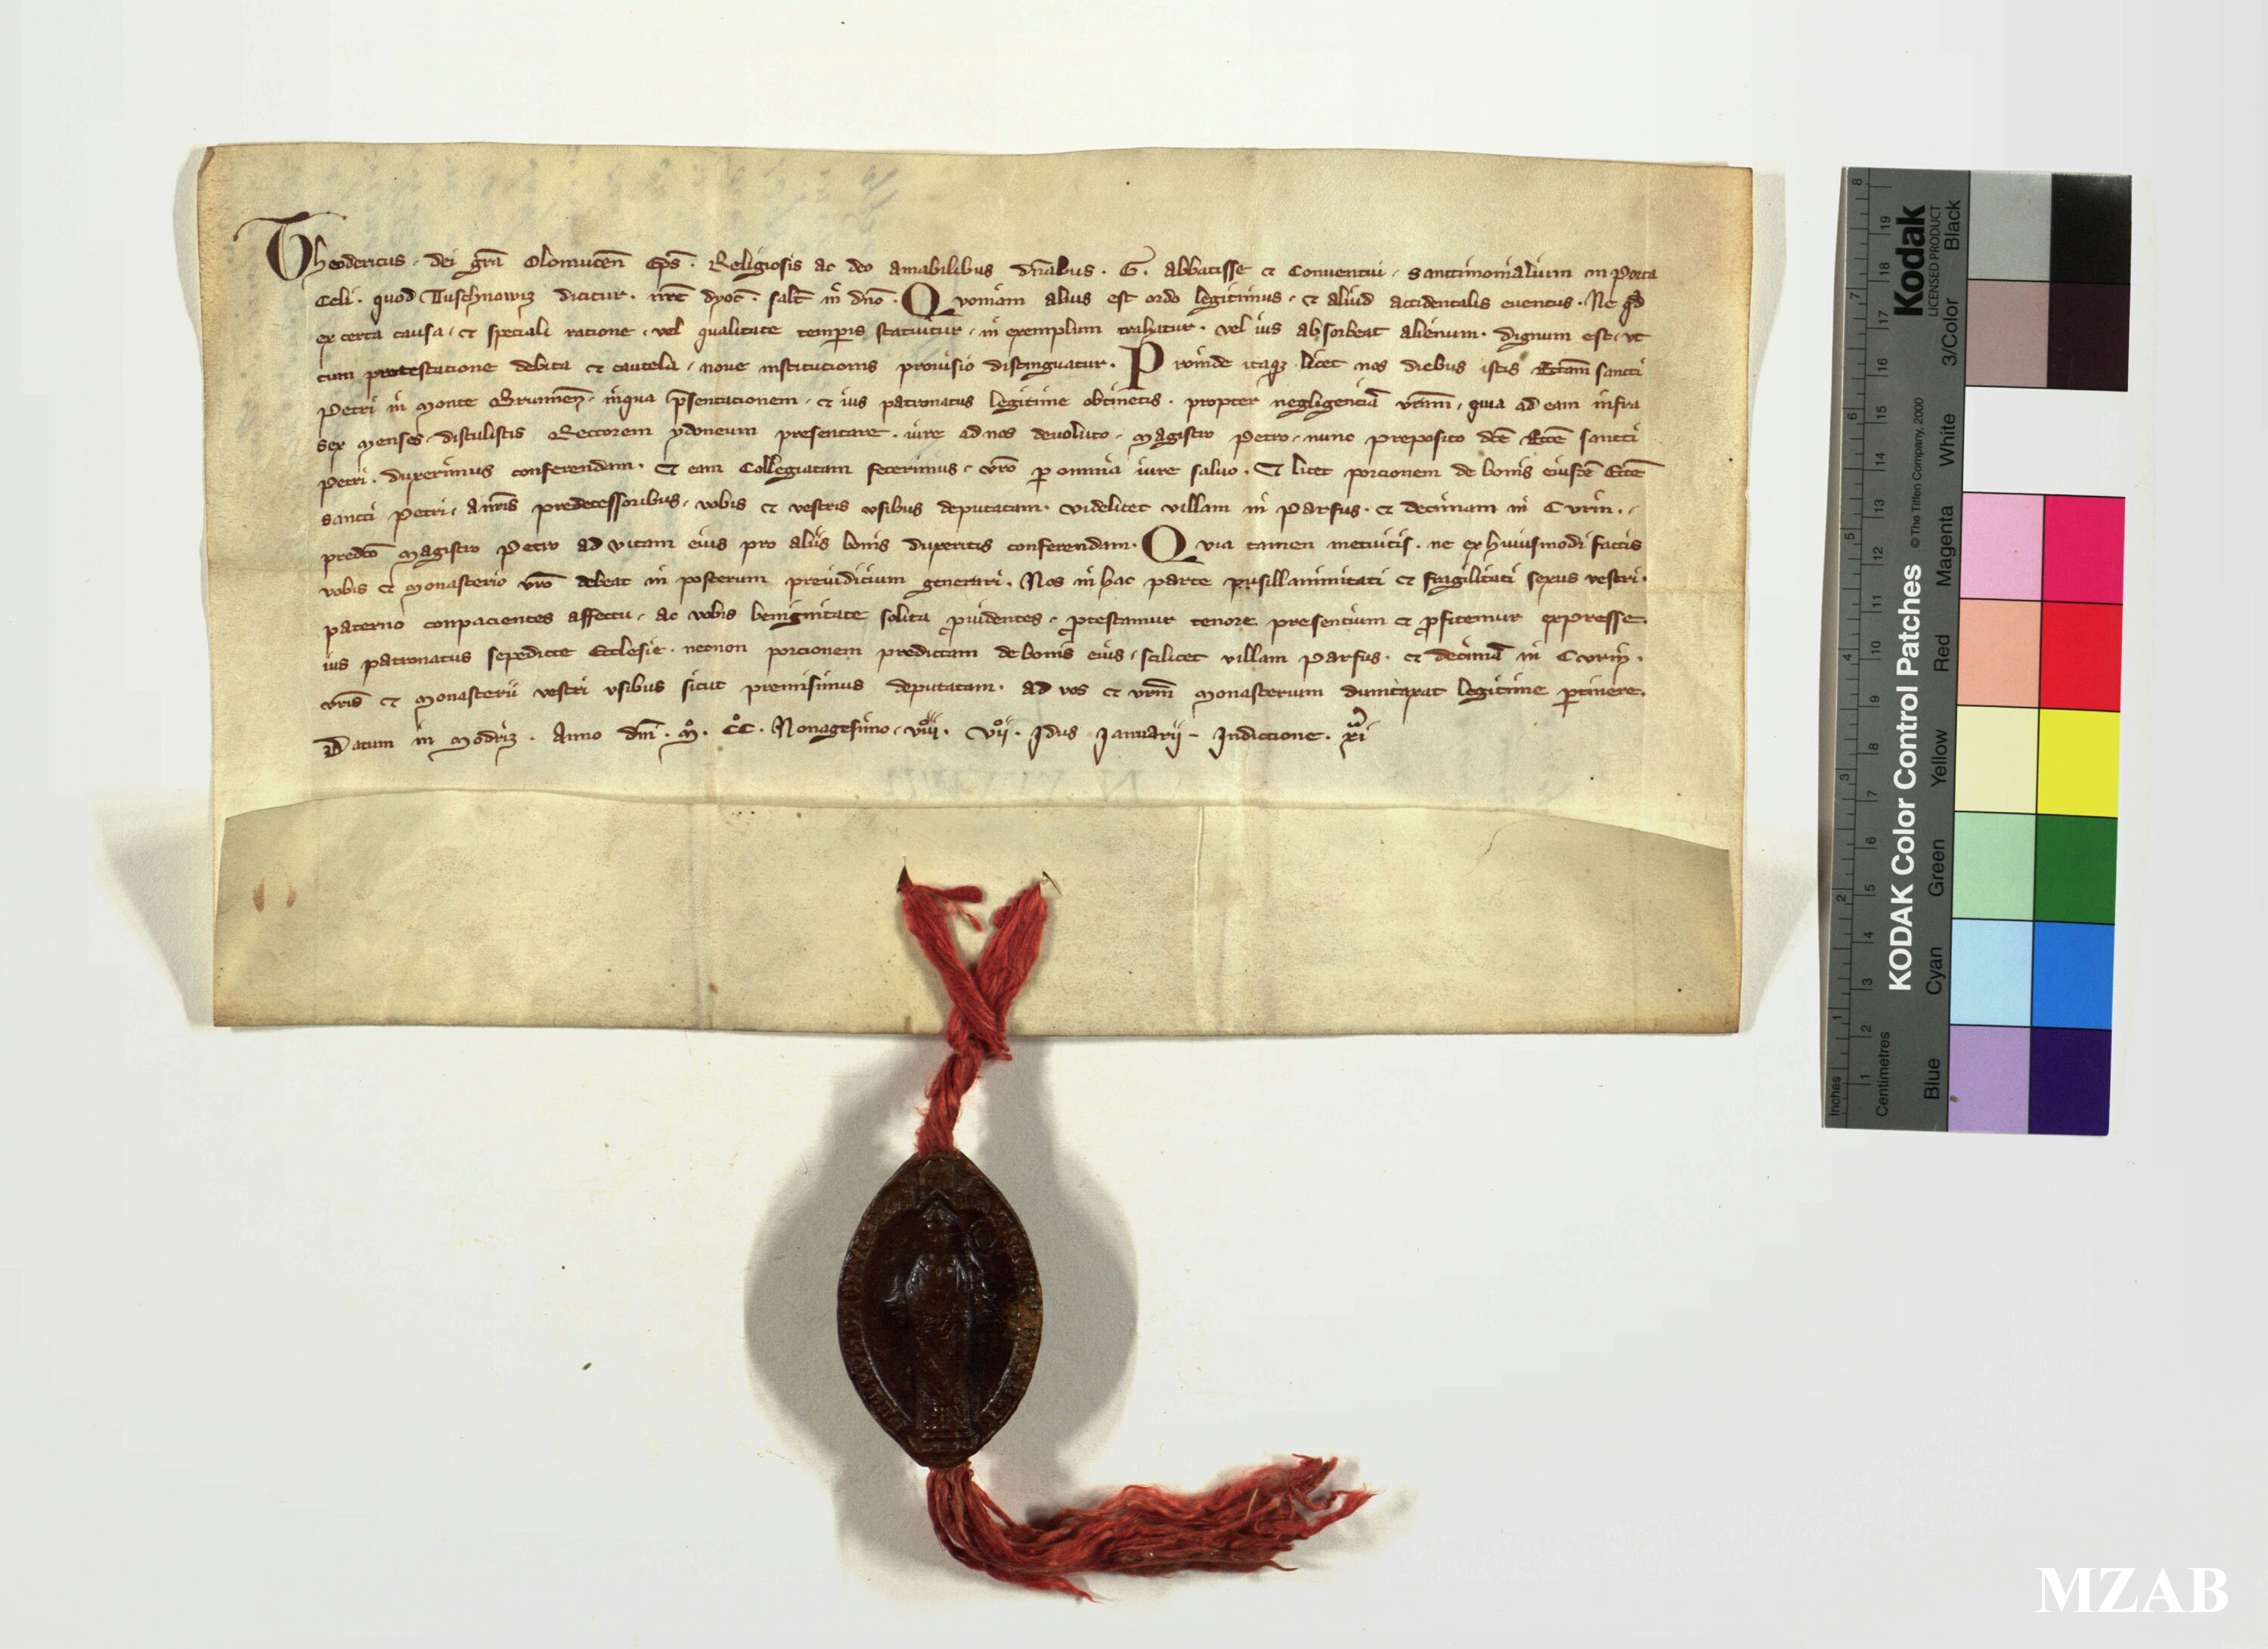 Theodericus · dei grã Olomucen̄ Ep̄s · Religiosis ac deo amabilibus dn̄abus · G · abbatisse et Conuentui · sanctimonialium in Porta
Celi · quod Tuschnowiz dicitur · nr̄e dyoc̄ · salt̄ in dn̄o · Quoniam alius est ordo legitimus · et aliud accidentalis euentus · Ne qd̄
ex certa causa · et speciali ratione · vel qualitate temp̄is statuitur · in exemplum trahatur · vel ius absorbeat alienum · dignum est · vt
cum protestatione debita et cautela · noue institucionis prouisio distinguatur · Proinde itaqȝ licet nos diebus istis Ecc̄am sancti
Petri in monte Brunnen̄ · inqua p̄sentacionem · et ius patronatus legitime obtinetis · propter negligenciā vr̄am · quia ad eam infra
sex menses · distulistis Rectorem ydoneum presentare · iure ad nos deuoluto · magistro Petro · nunc preposito dc̄e Ecc̄e sancti
Petri · duxerimus conferendam · et eam Collegiatam fecerimus · vr̄o ꝑ omnia iure saluo · Et licet porcionem de bonis eiusdē Ecc̄e
sancti Petri · a nr̄is predecessoribus · vobis et vestris vsibus deputatam · videlicet villam in Parfus · et decimam in Curin ·
predc̄o magistro Petro ad vitam eius pro aliis bonis duxeritis conferendam · Quia tamen metuitis · ne ex huiusmodi factis
vobis et monasterio vr̄o debeat in posterum preiudicium generari · Nos in hac parte pusillanimitati et fragilitati sexus vestri ·
paterno conpacientes affectu · ac vobis benignitate solita ꝓuidentes · ꝓtestamur tenore presentium et ꝓfitemur expresse ·
ius patronatus sepedicte Ecclesie · necnon porcionem predictam de bonis eius · scilicet villam Parfus · et decimā in Curin̄ ·
vr̄is et monasterii vestri vsibus sicut premisimus deputatam · ad vos et vr̄m monasterium dumtaxat legitime ꝑtinere ·
Datum in modriz · Anno dn̄i · mͦ · CCͦ · Nonagesimo · viiiͦ · viiͦ · Idus Ianuarij – Indictione · xi
Kodak
LICENSED PRODUCT
KODAK Color Control Patches
© The Tiffen Company, 2000
Blue Cyan Green Yellow Red Magenta White 3/Color Black
Inches 1 2 3 4 5 6 7 8
Centimetres 1 2 3 4 5 6 7 8 9 10 11 12 13 14 15 16 17 18 19
MZAB